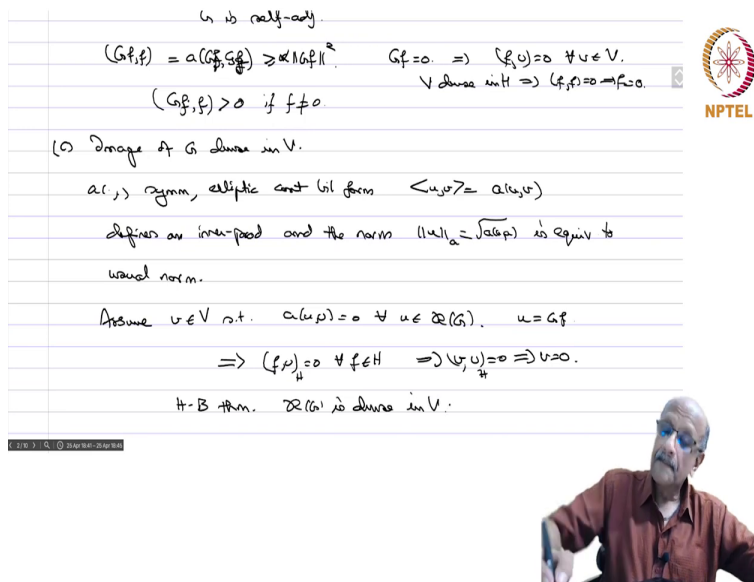 G is self-adj.
(Gf,f) = a(Gf,Gf) ≥ α‖Gf‖² Gf=0. ⇒ (f,v)=0 ∀ v∈V.
V dense in H ⇒ (f,f)=0 ⇒ f=0.
(Gf,f) > 0 if f≠0.
NPTEL
(c) Image of G dense in V.
a(.,.) symm, elliptic cont bil form <u,v> = a(u,v)
defines an inner-prod and the norm ‖u‖ₐ = √a(u,u) is equiv to
usual norm.
Assume v∈V s.t. a(u,v)=0 ∀ u∈ R(G). u=Gf
⇒ (f,v)_H =0 ∀ f∈H ⇒ (v,v)_H =0 ⇒ v=0.
H-B thm. R(G) is dense in V.
2/10 25 Apr 18:41 – 25 Apr 18:46